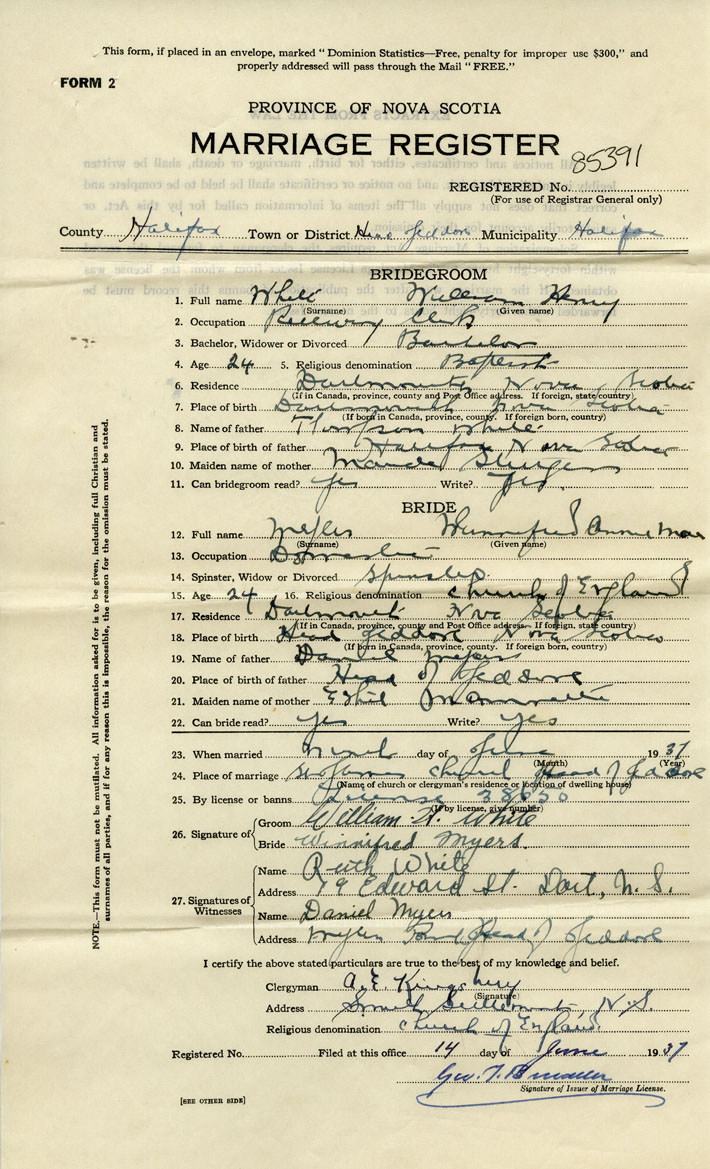 This form, if placed in an envelope, marked "Dominion Statistics—Free, penalty for improper use $300," and
properly addressed will pass through the Mail "FREE."
FORM 2
PROVINCE OF NOVA SCOTIA
MARRIAGE REGISTER
85391
REGISTERED No.
(For use of Registrar General only)
County Halifax Town or District Head Jeddore Municipality Halifax
BRIDEGROOM
1. Full name White William Henry
(Surname) (Given name)
2. Occupation Railway Clerk
3. Bachelor, Widower or Divorced Bachelor
4. Age 24 5. Religious denomination Baptist
6. Residence Dartmouth Nova Scotia
(If in Canada, province, county and Post Office address. If foreign, state country)
7. Place of birth Dartmouth Nova Scotia
(If born in Canada, province, county. If foreign born, country)
8. Name of father White
9. Place of birth of father Halifax Nova Scotia
10. Maiden name of mother
11. Can bridegroom read? Yes Write? Yes.
BRIDE
12. Full name Myers Winnifred Annie Mae
(Surname) (Given name)
13. Occupation Domestic
14. Spinster, Widow or Divorced Spinster
15. Age 24 16. Religious denomination Church of England
17. Residence Dartmouth Nova Scotia
(If in Canada, province, county and Post Office address. If foreign, state country)
18. Place of birth Head Jeddore Nova Scotia
(If born in Canada, province, county. If foreign born, country)
19. Name of father Daniel Myers
20. Place of birth of father Head of Jeddore
21. Maiden name of mother Ethel
22. Can bride read? Yes Write? Yes
23. When married Ninth day of June 1937
(Month) (Year)
24. Place of marriage St James Church Head of Jeddore
(Name of church or clergyman's residence or location of dwelling house)
25. By license or banns License
(If by license, give number)
26. Signature of Groom William H. White
Bride Winnifred Myers.
27. Signatures of Witnesses
Name Ruth White
Address 79 Edward St. Dart, N.S.
Name Daniel Myers
Address Myers Head of Jeddore
I certify the above stated particulars are true to the best of my knowledge and belief.
Clergyman A. E. Kingsbury
(Signature)
Address Settlement, N.S.
Religious denomination Church of England.
Registered No. Filed at this office 14 day of June 1937
Geo. T.
Signature of Issuer of Marriage License.
[SEE OTHER SIDE]
NOTE.—This form must not be mutilated. All information asked for is to be given, including full Christian and
surnames of all parties, and if for any reason this is impossible, the reason for the omission must be stated.